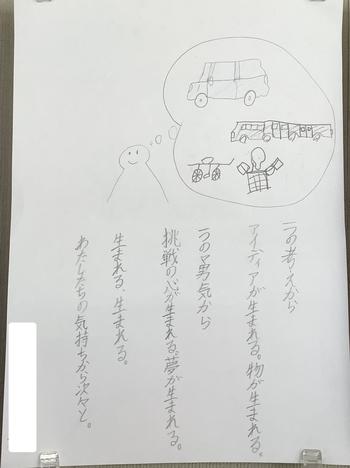 一つの考えから
アイディアが生まれる。物が生まれる。
一つの勇気から
挑戦の心が生まれる。夢が生まれる。
生まれる、生まれる。
あたしたちの気持ちから次々と。